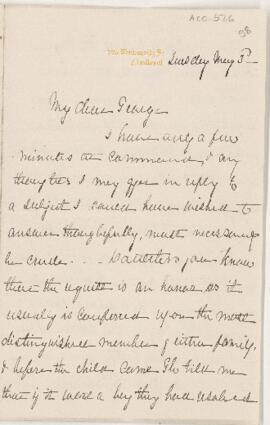 ACC-516
Tuesday May 3rd
My dear George
I have only a few
minutes at command & any
thoughts I may give in reply to
a subject I could have wished to
answer thoughtfully, must necessarily
be crude . . . you know
there the is an honor as it
usually is conferred upon the most
distinguished member of either family,
& before the child came She told me
that if it were a boy they had